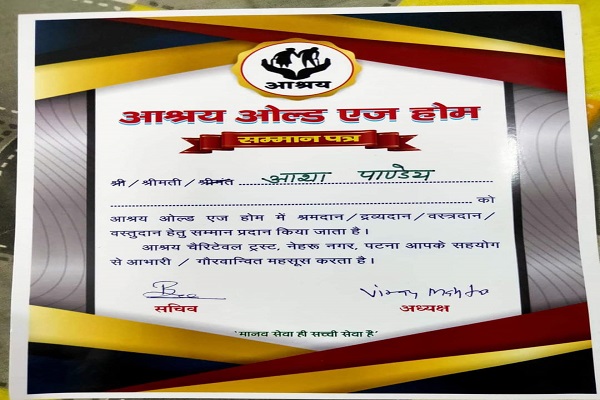 आश्रय
आश्रय ओल्ड एज होम
सम्मान पत्र
श्री / श्रीमती / श्रीमंत आशा पाण्डेय
को
आश्रय ओल्ड एज होम में श्रमदान/द्रव्यदान/वस्त्रदान/
वस्तुदान हेतु सम्मान प्रदान किया जाता है।
आश्रय चैरिटेवल ट्रस्ट, नेहरू नगर, पटना आपके सहयोग
से आभारी / गौरवान्वित महसूस करता है।
Vijay Mahto
सचिव अध्यक्ष
'मानव सेवा ही सच्ची सेवा है'